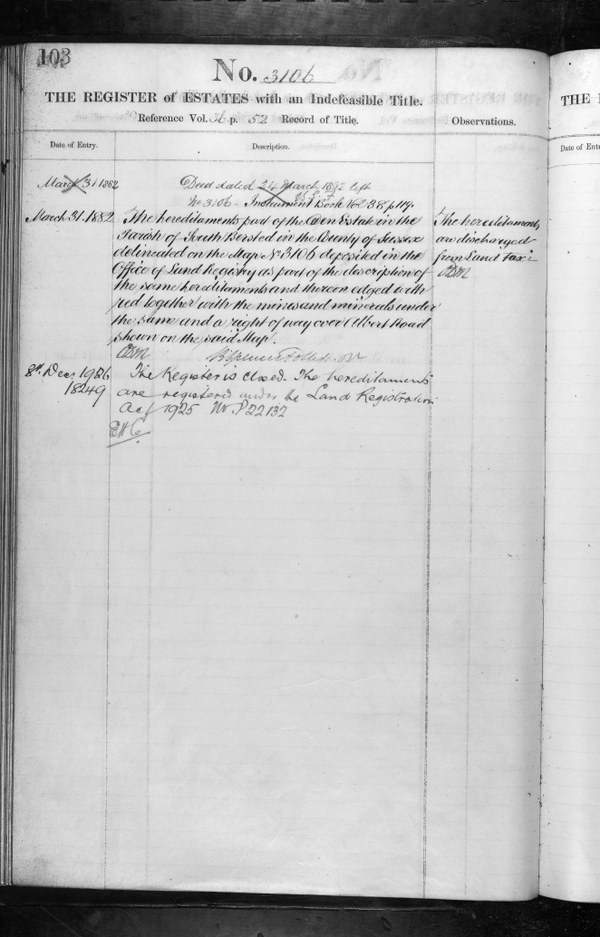 103
No. 3106
THE REGISTER of ESTATES with an Indefeasible Title.
Reference Vol. p. 52 Record of Title.
Observations.
Date of Entry.
Description.
March 31 1882
Deed dated 24 March 1882 left
No 3106 Instrument Book Vol 38 p 114.
March 31. 1882
The hereditaments part of the Estate in the
Parish of South Bersted in the County of Sussex
delineated on the Map No 3106 deposited in the
Office of Land Registry as part of the description of
the same hereditaments and thereon edged with
red together with the mines and minerals under
the same and a right of way over Albert Road
shown on the said Map.
The hereditaments
are discharged
from Land Tax
8th Dec 1926
18249
The Register is closed. The hereditaments
are registered under the Land Registration
Act 1925 No P 22132
THE
Date of Ent